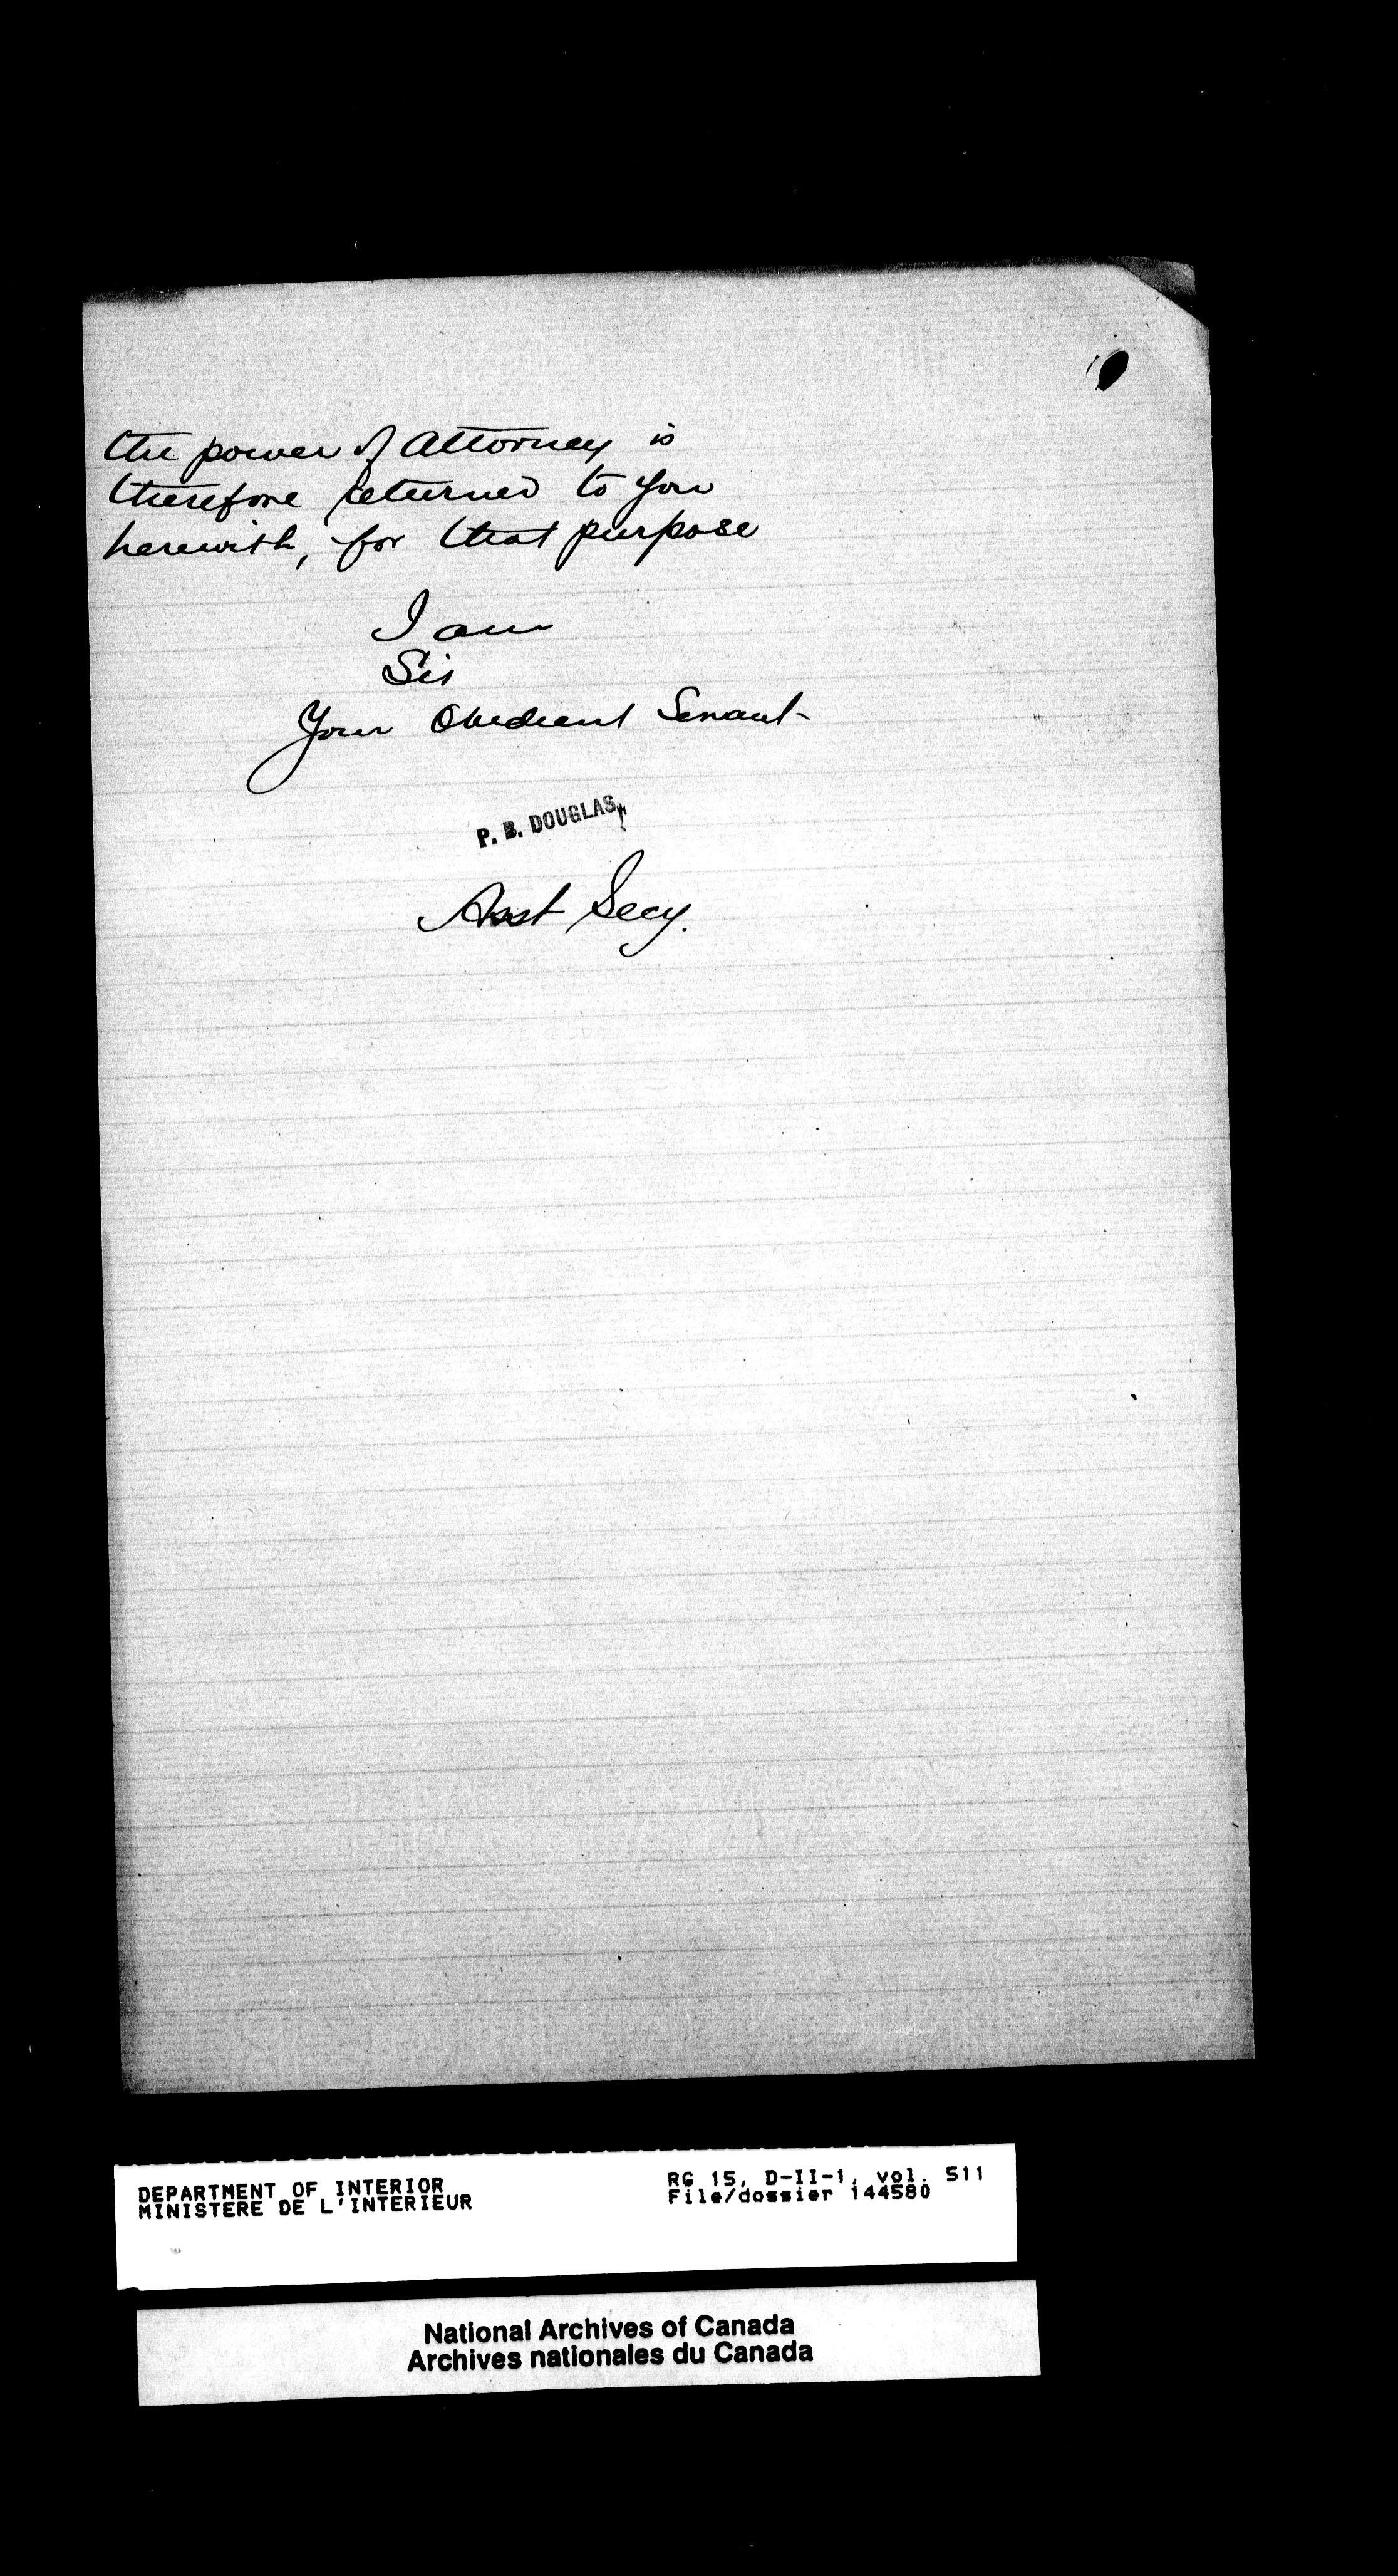 the power of Attorney is
therefore returned to you
herewith, for that purpose
I am
Sir
Your Obedient Servant
P. B. DOUGLAS,
Asst Secy.
DEPARTMENT OF INTERIOR
MINISTERE DE L'INTERIEUR
RG 15, D-II-1, vol. 511
File/dossier 144580
National Archives of Canada
Archives nationales du Canada